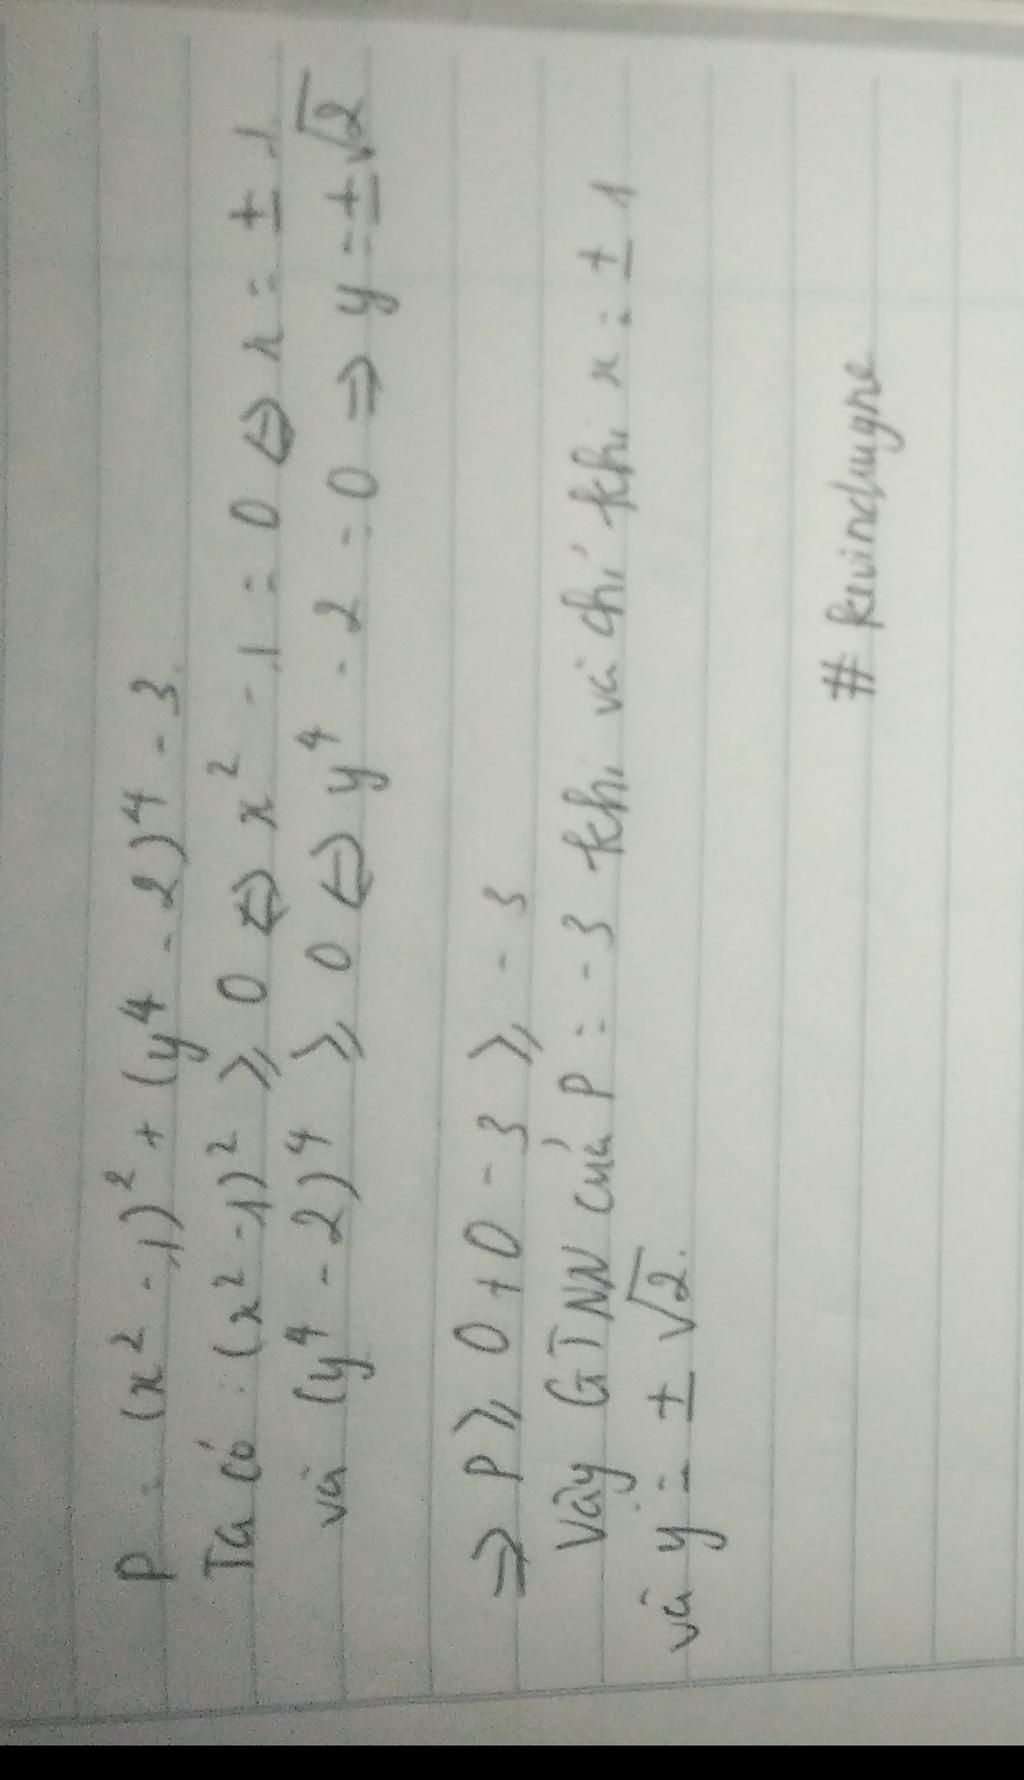 P = (x² - 1)² + (y⁴ - 2)⁴ - 3.
Ta có : (x² - 1)² ⩾ 0 ⇔ x² - 1 = 0 ⇔ x = ± 1
và (y⁴ - 2)⁴ ⩾ 0 ⇔ y⁴ - 2 = 0 ⇒ y = ± √2
⇒ P ⩾ 0 + 0 - 3 ⩾ - 3
Vậy GTNN của P = - 3 khi và chỉ khi x = ± 1
và y = ± √2.
# kevindungne